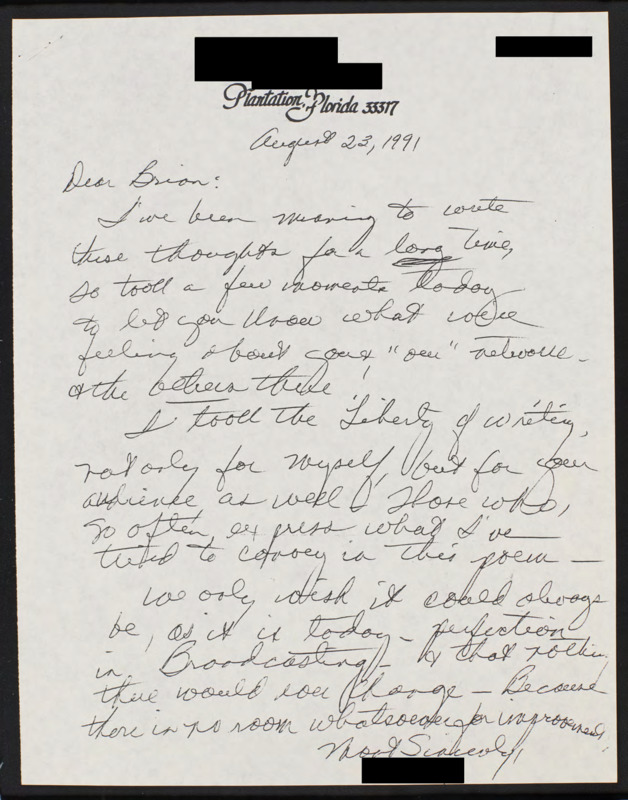 Plantation, Florida 33317
August 23, 1991
Dear Brian:
I've been meaning to write
these thoughts for a long time,
so took a few moments today
to let you know what we're
feeling about your "our" network -
& the others there!
I took the liberty of writing,
not only for myself, but for your
audience as well & those who,
so often, express what I've
tried to convey in this poem —
We only wish it could always
be, as it is today - perfection
in Broadcasting - & that nothing
there would ever change — Because
there is no room whatsoever for improvement.
Most Sincerely,